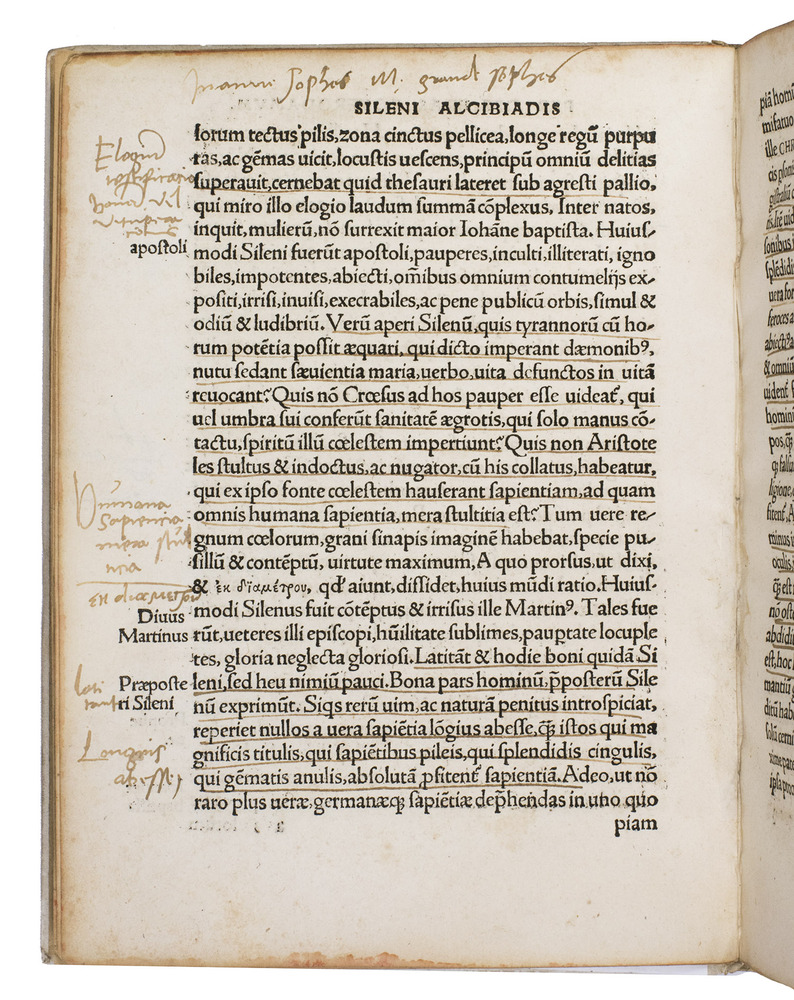 SILENI ALCIBIADIS
lorum tectus pilis, zona cinctus pellicea, longe regũ purpu
ras, ac gẽmas uicit, locustis uescens, principũ omniũ delitias
superauit, cernebat quid thesauri lateret sub agresti pallio,
qui miro illo elogio laudum summã cõplexus, Inter natos,
inquit, mulierũ, nõ surrexit maior Iohãne baptista. Huius-
apostoli
modi Sileni fuerũt apostoli, pauperes, inculti, illiterati, igno
biles, impotentes, abiecti, om̃ibus omnium contumelijs ex-
positi, irrisi, inuisi, execrabiles, ac pene publicũ orbis, simul &
odiũ & ludibriũ. Verũ aperi Silenũ, quis tyrannorũ cũ ho-
rum potẽtia possit æquari, qui dicto imperant dæmonibꝰ,
nutu sedant sæuientia maria, uerbo, uita defunctos in uitã
reuocant? Quis nõ Crœsus ad hos pauper esse uideat᷑, qui
uel umbra sui conferũt sanitatẽ ægrotis, qui solo manus cõ-
tactu, spiritũ illũ cœlestem impertiunt? Quis non Aristote
les stultus & indoctus, ac nugator, cũ his collatus, habeatur,
qui ex ipso fonte cœlestem hauserant sapientiam, ad quam
omnis humana sapientia, mera stultitia est? Tum uere re-
gnum cœlorum, grani sinapis imaginẽ habebat, specie pu-
sillũ & contẽptũ, uirtute maximum, A quo prorsus, ut dixi,
& ἐκ διαμέτρου, qđ aiunt, dissidet, huius mũdi ratio. Huius-
Diuus
Martinus
modi Silenus fuit cõtẽptus & irrisus ille Martinꝰ. Tales fue
rũt, ueteres illi episcopi, hũilitate sublimes, paupertate locuple
tes, gloria neglecta gloriosi. Latitãt & hodie boni quidã Si
Præposte
ri Sileni
leni, sed heu nimiũ pauci. Bona pars hominũ, p̃posterũ Sile
nũ exprimũt. Siqs rerũ uim, ac naturã penitus introspiciat,
reperiet nullos a uera sapiẽtia lõgius abesse, q̃ꝫ istos qui ma
gnificis titulis, qui sapiẽtibus pileis, qui splendidis cingulis,
qui gẽmatis anulis, absolutã ꝓfitent᷑ sapientiã. Adeo, ut nõ
raro plus ueræ, germanæqꝫ sapiẽtiæ dep̃hendas in uno quo
piam